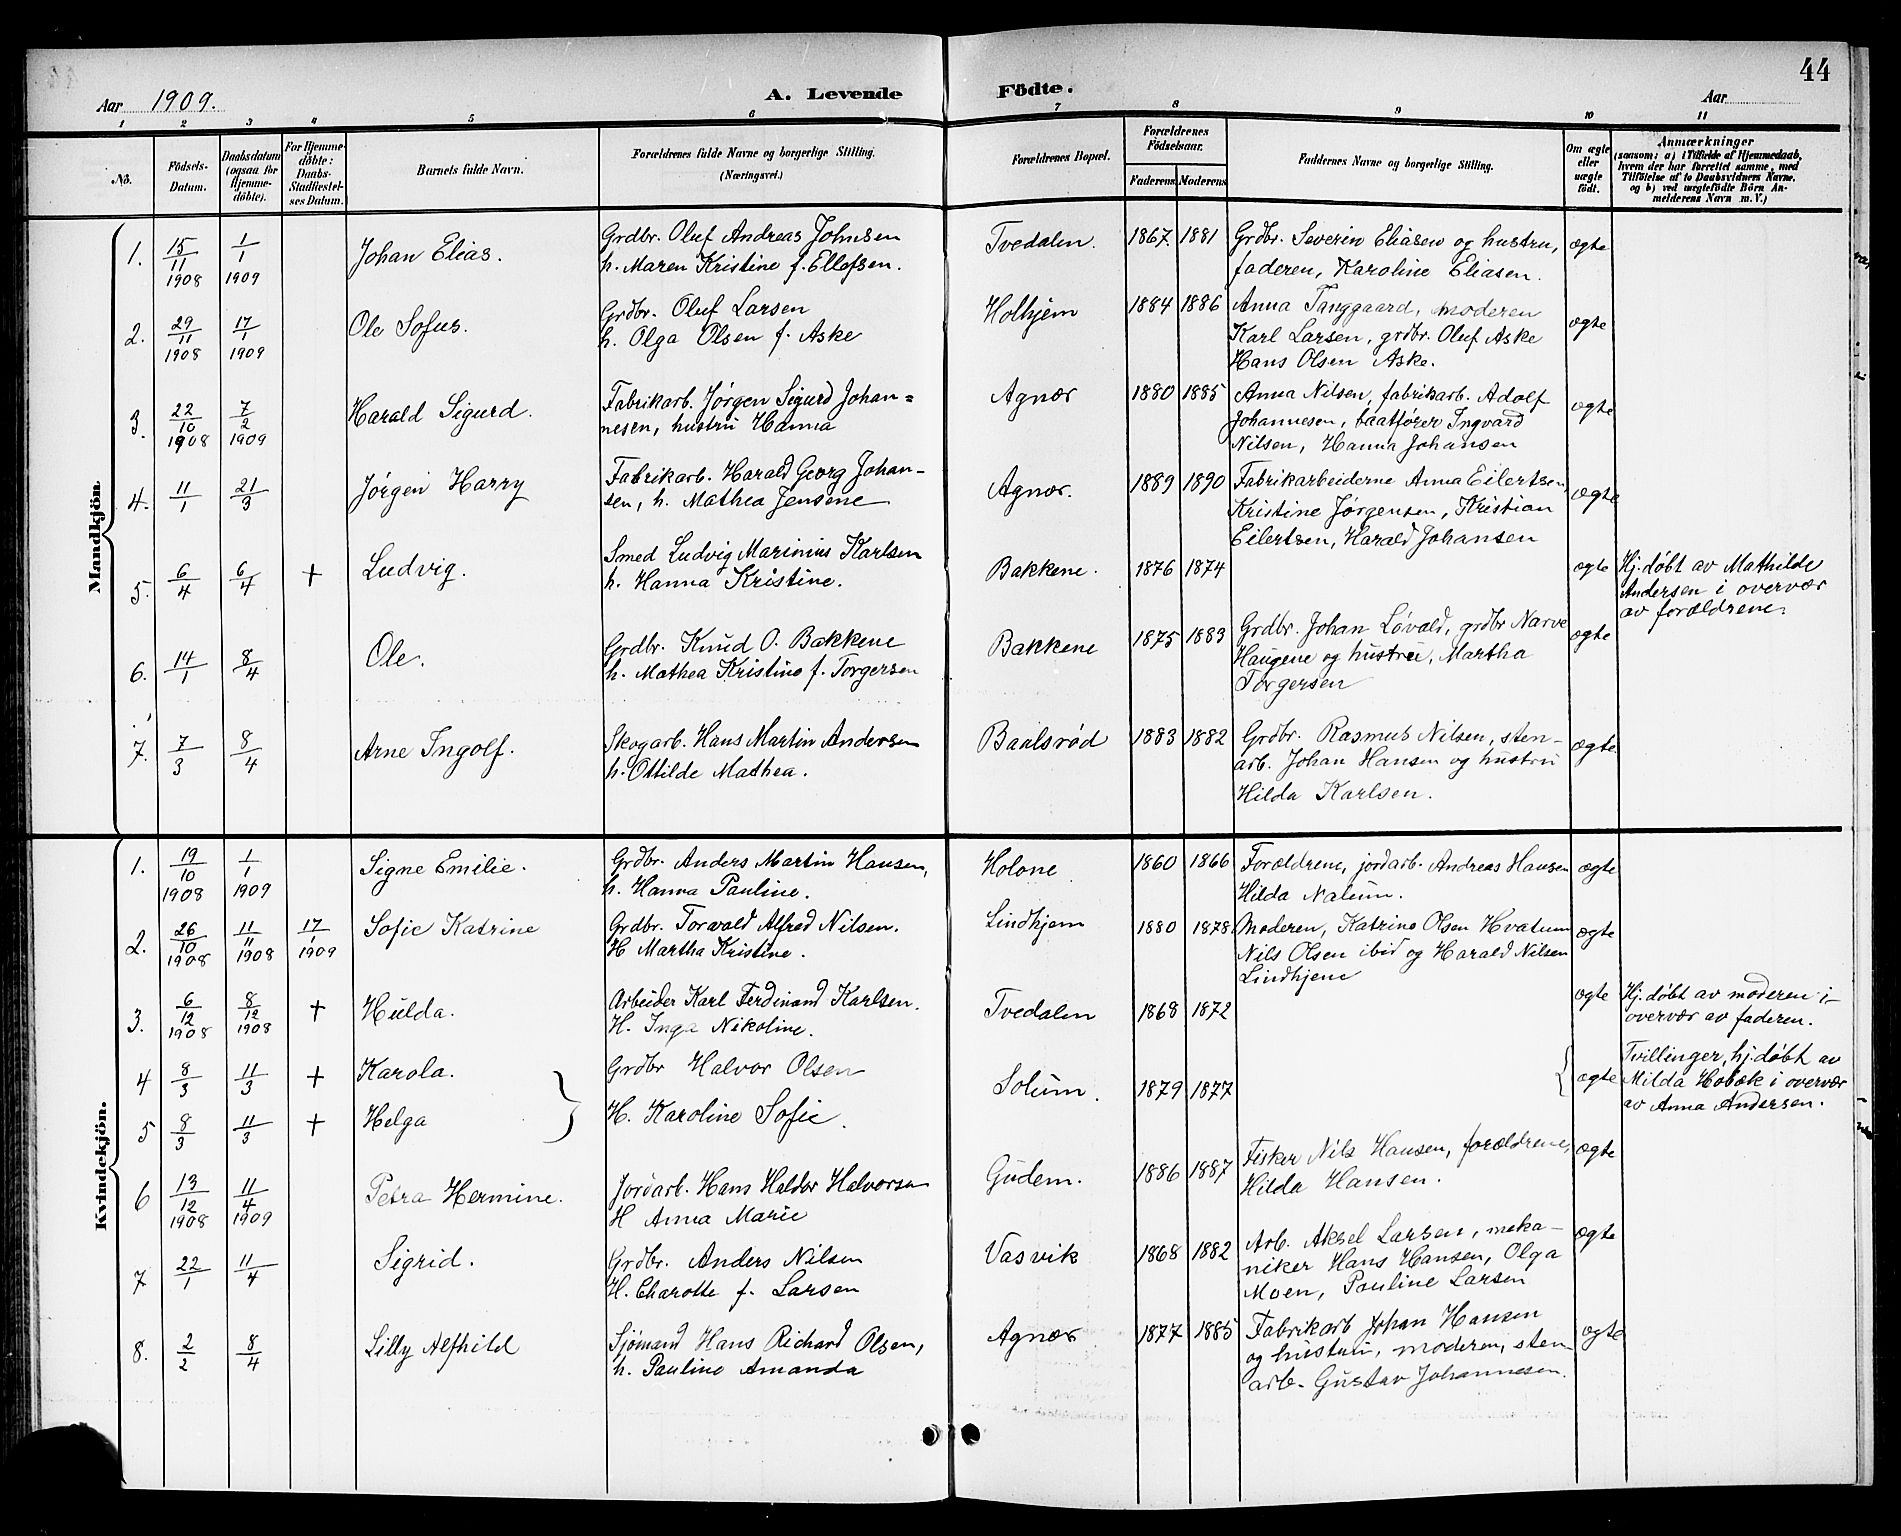 44
Aar 1909.
A. Levende Födte.
Aar
1 2 3 4 5 6 7 8 9 10 11
No.
Födsels-
Datum.
Daabsdatum
(ogsaa for
Hjemme-
döbte).
For Hjemme-
döbte:
Daabs-
Stadfæstel-
ses Datum.
Barnets fulde Navn.
Forældrenes fulde Navne og borgerlige Stilling.
(Næringsvei.)
Forældrenes Bopæl.
Forældrenes
Födselsaar.
Faderens Moderens
Faddernes Navne og borgerlige Stilling.
Om ægte
eller
uægte
födt.
Anmærkninger
(saasom: a) i Tilfælde af Hjemmedaab,
hvem der har forrettet samme, med
Tilföielse af to Daabsvidners Navne,
og b) ved uægtefödte Börn An-
melderens Navn m. V.)
Mandkjön.
1. 15/11 1908 1/1 1909 Johan Elias.
Grdbr. Oluf Andreas Johnsen
h. Maren Kristine f. Ellefsen.
Tvedalen. 1867 1881
Grdbr. Severin Eliasen og hustru,
faderen, Karoline Eliasen.
ægte
2. 29/11 1908 17/1 1909 Ole Sofus.
Grdbr. Oluf Larsen
h. Olga Olsen f. Aske
Holhjem 1884 1886
Anna Tanggaard, moderen
Karl Larsen, grdbr. Oluf Aske
Hans Olsen Aske.
ægte
3. 22/10 1908 7/2 1909 Harald Sigurd.
Fabrikarb. Jørgen Sigurd Johan=
nesen, hustru Hanna
Agnær 1880 1885
Anna Nilsen, fabrikarb. Adolf
Johannesen, baatfører Ingvard
Nilsen, Hanna Johansen
ægte
4. 11/1 21/3 Jørgen Harry
Fabrikarb. Harald Georg Johan-
sen, h. Mathea Jensene
Agnær. 1889 1890
Fabrikarbeiderne Anna Eilertsen,
Kristine Jørgensen, Kristian
Eilertsen, Harald Johansen
ægte
5. 6/4 6/4 + Ludvig.
Smed Ludvig Marinius Karlsen
h. Hanna Kristine.
Bakkene. 1876 1874
ægte
Hj. døbt av Mathilde
Andersen i overvær
av forældrene.
6. 14/1 8/4 Ole.
Grdbr. Knud O. Bakkene
h. Mathea Kristine f. Torgersen
Bakkene 1875 1883
Grdbr. Johan Løvald, grdbr Narve
Haugene og hustru, Martha
Torgersen
ægte
7. 7/3 8/4 Arne Ingolf.
Skogarb. Hans Martin Andersen
h. Ottilde Mathea.
Baalsrød 1883 1882
Grdbr. Rasmus Nilsen, sten-
arb. Johan Hansen og hustru
Hilda Karlsen.
ægte
Kvindekjön.
1. 19/10 1908 1/1 1909 Signe Emilie.
Grdbr. Anders Martin Hansen,
h. Hanna Pauline.
Holone 1860 1866
Forældrene, jordarb. Andreas Hansen
Hilda Nalum.
ægte
2. 26/10 1908 11/11 1908 17/1 1909 Sofie Katrine
Grdbr. Torvald Alfred Nilsen.
H Martha Kristine.
Lindhjem 1880 1878
Moderen, Katrine Olsen Hvatum
Nils Olsen ibid og Harald Nilsen
Lindhjem
ægte
3. 6/12 1908 8/12 1908 + Hulda.
Arbeider Karl Ferdinand Karlsen.
H. Inga Nikoline.
Tvedalen 1868 1872
ægte
Hj. døbt av moderen i
overvær av faderen.
4 8/3 11/3 + Karola.
Grdbr Halvor Olsen
Solum. 1879 1877
ægte
Tvillinger, hj. døbt av
Milda Hobæk i overvær
av Anna Andersen.
5 8/3 11/3 + Helga
H. Karoline Sofie.
6 13/12 1908 11/4 1909 Petra Hermine.
Jordarb. Hans Haldor Halvorsen
H Anna Marie
Gudem. 1886 1887
Fisker Nils Hansen, forældrene,
Hilda Hansen.
ægte
7 22/1 11/4 Sigrid.
Grdbr. Anders Nilsen
H. Charotte f. Larsen
Vasvik 1868 1882
Arb. Aksel Larsen, meka-
niker Hans Hansen, Olga
Moen, Pauline Larsen
ægte
8. 2/2 8/4 Lilly Alfhild
Sjømand Hans Richard Olsen,
h. Pauline Amanda
Agnær 1877 1885
Fabrikarb Johan Hansen
og hustru, moderen, sten
arb. Gustav Johannesen.
ægte